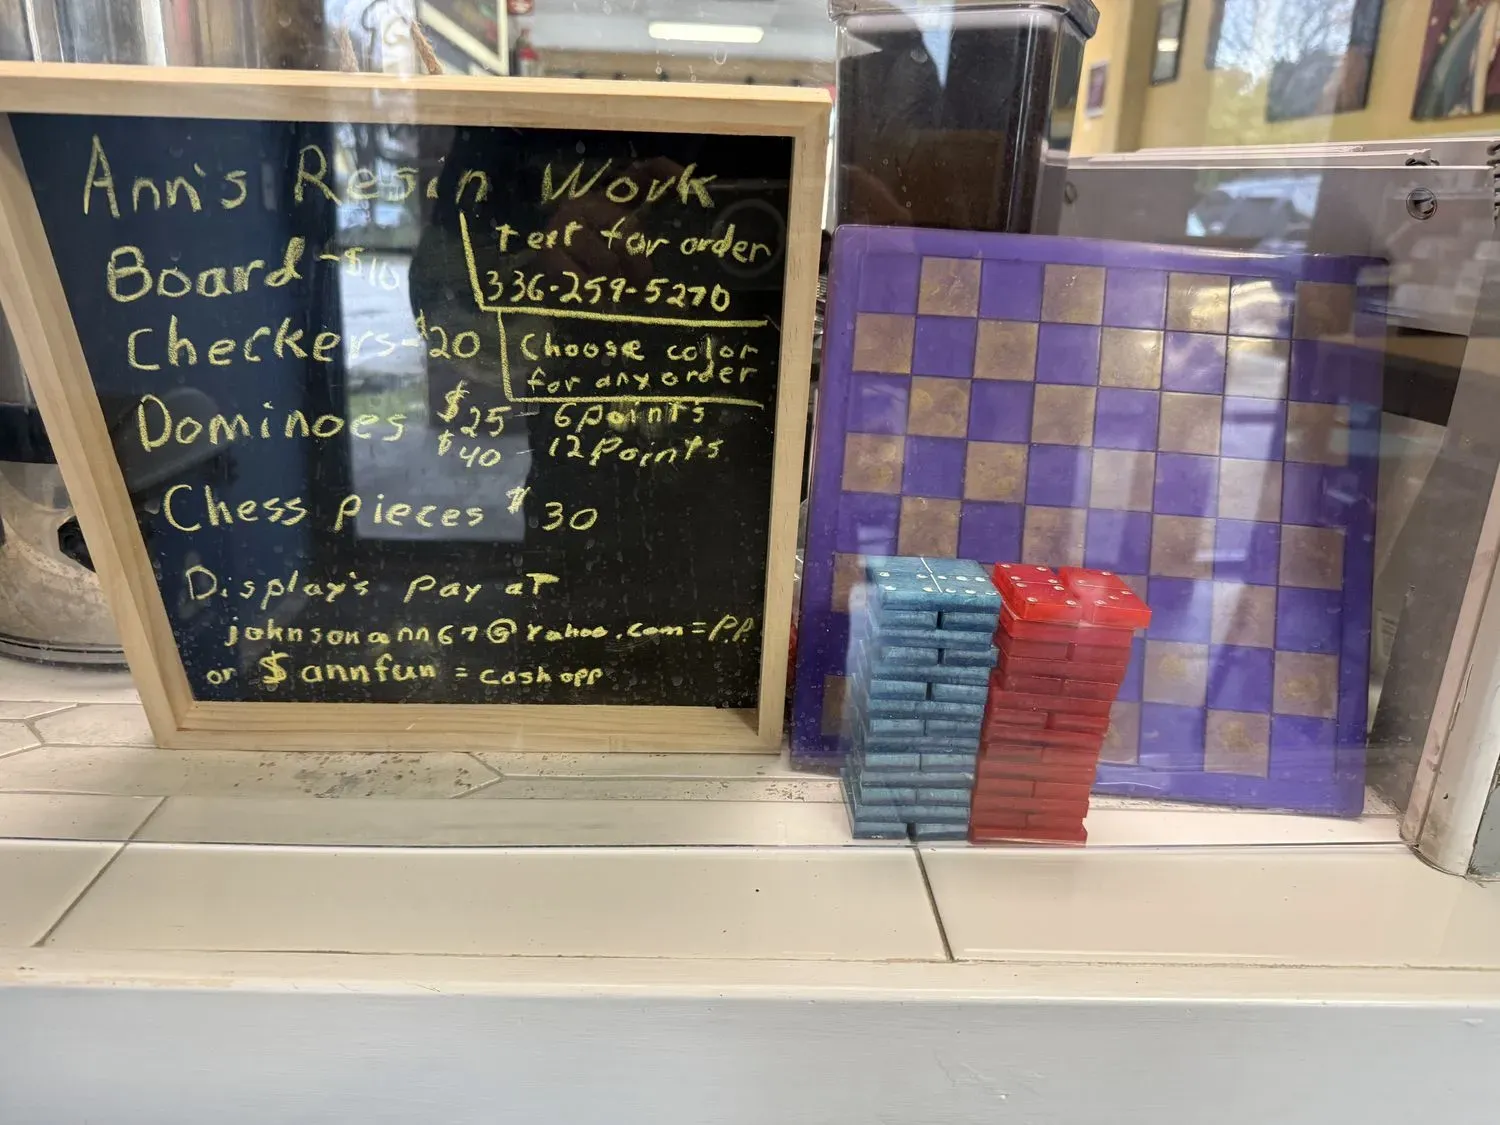 Ann's Resin Work
Board - $10
text for order
336-259-5270
Checkers - $20
Choose color
for any order
Dominoes $25 - 6 points
$40 - 12 Points
Chess pieces $30
Display's pay at
johnsonann67@yahoo.com = P.P.
or $annfun = cash app